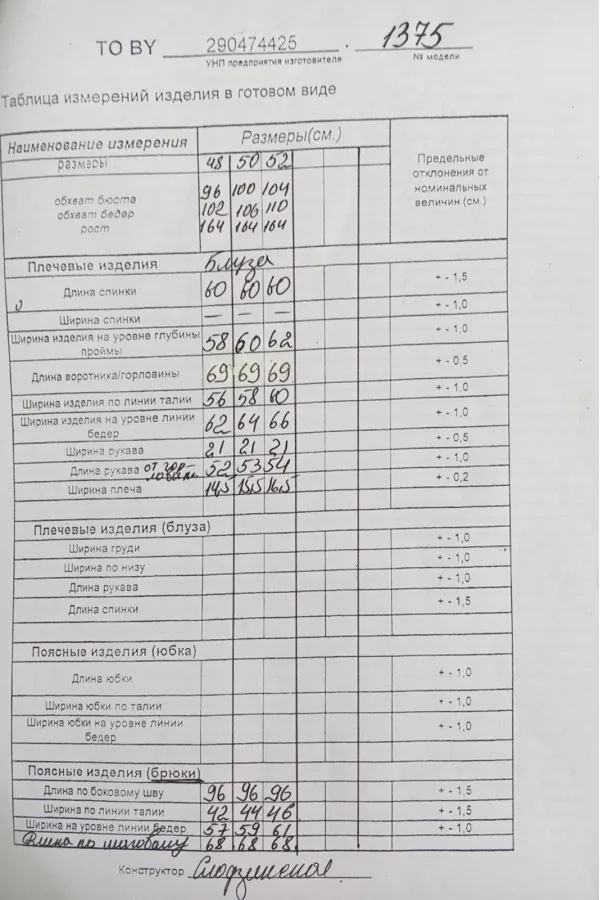 ТО BY 290474425 . 1375
УНП предприятия изготовителя № модели
Таблица измерений изделия в готовом виде
Наименование измерения Размеры(см.) Предельные отклонения от номинальных величин (см.)
размеры 48 50 52
обхват бюста 96 100 104
обхват бедер 102 106 110
рост 164 164 164
Плечевые изделия Блуза
Длина спинки 60 60 60 + - 1,5
Ширина спинки — — — + - 1,0
Ширина изделия на уровне глубины проймы 58 60 62 + - 1,0
Длина воротника/горловины 69 69 69 + - 0.5
Ширина изделия по линии талии 56 58 60 + - 1,0
Ширина изделия на уровне линии бедер 62 64 66 + - 1,0
Ширина рукава 21 21 21 + - 0,5
Длина рукава от гор-ловины 52 53 54 + - 1,0
Ширина плеча 14,5 15,5 16,5 + - 0,2
Плечевые изделия (блуза)
Ширина груди + - 1,0
Ширина по низу + - 1,0
Длина рукава + - 1,0
Длина спинки + - 1,5
Поясные изделия (юбка)
Длина юбки + - 1,0
Ширина юбки по талии + - 1,0
Ширина юбки на уровне линии бедер + - 1,0
Поясные изделия (брюки)
Длина по боковому шву 96 96 96 + - 1,5
Ширина по линии талии 42 44 46 + - 1,5
Ширина на уровне линии бедер 57 59 61 + - 1,0
Длина по шаговому 68 68 68
Конструктор